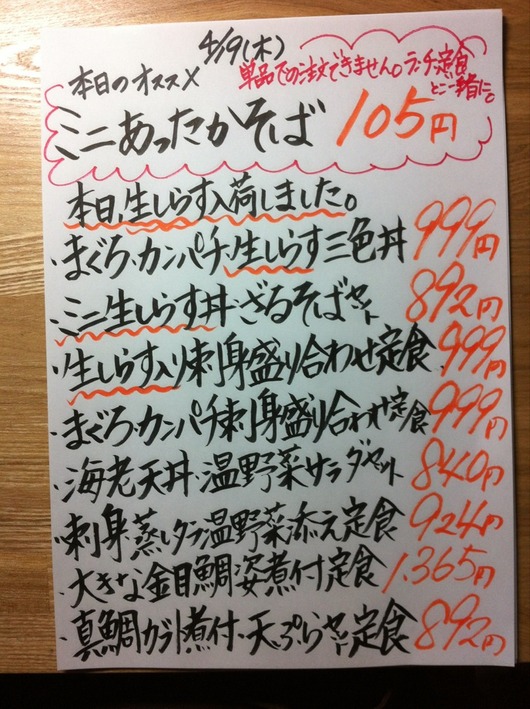 4/19(木)
本日のオススメ
単品での注文できません。ランチ定食
とご一緒に。
ミニあったかそば 105円
本日、生しらす入荷しました。
・まぐろ・カンパチ・生しらす三色丼 999円
・ミニ生しらす丼・ざるそばセット 892円
・生しらす入り刺身盛り合わせ定食 999円
・まぐろ・カンパチ刺身盛り合わせ定食 999円
・海老天丼・温野菜サラダセット 840円
・刺身・蒸しタラ温野菜添え定食 924円
・大きな金目鯛姿煮付定食 1.365円
・真鯛カブト煮付・天ぷらセット定食 892円